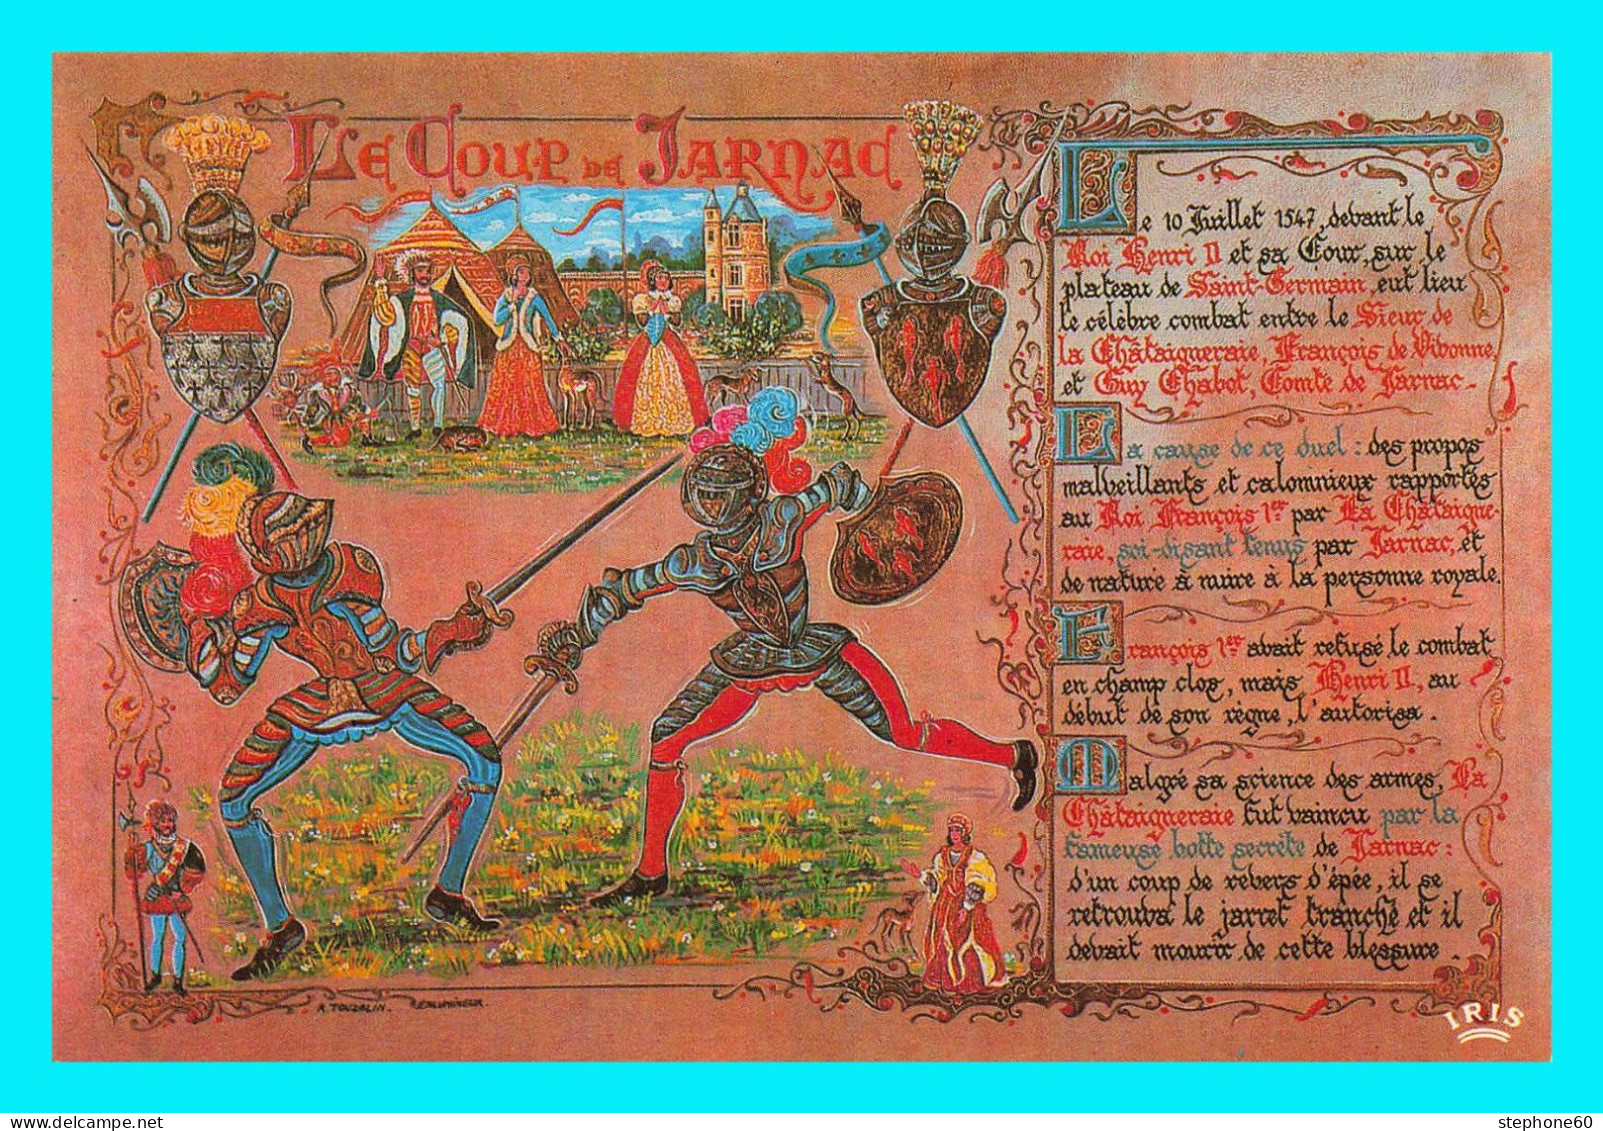 Le Coup de Jarnac
Le 10 Juillet 1547, devant le
Roi Henri II et sa Cour, sur le
plateau de Saint-Germain, eut lieu
le célèbre combat entre le Sieur de
la Châtaigneraie, François de Vibonne,
et Guy Chabot, Comte de Jarnac-
La cause de ce duel : des propos
malveillants et calomnieux rapportés
au Roi François 1er par La Châtaigne-
raie, soi-disant tenus par Jarnac, et
de nature à nuire à la personne royale.
François 1er avait refusé le combat
en champ clos, mais Henri II, au
début de son règne, l'autorisa.
Malgré sa science des armes, La
Châtaigneraie fut vaincu par la
fameuse botte secrète de Jarnac :
d'un coup de revers d'épée, il se
retrouva le jarret tranché et il
devait mourir de cette blessure.
R. TOUZALIN. ENLUMINEUR.
IRIS
stephone60